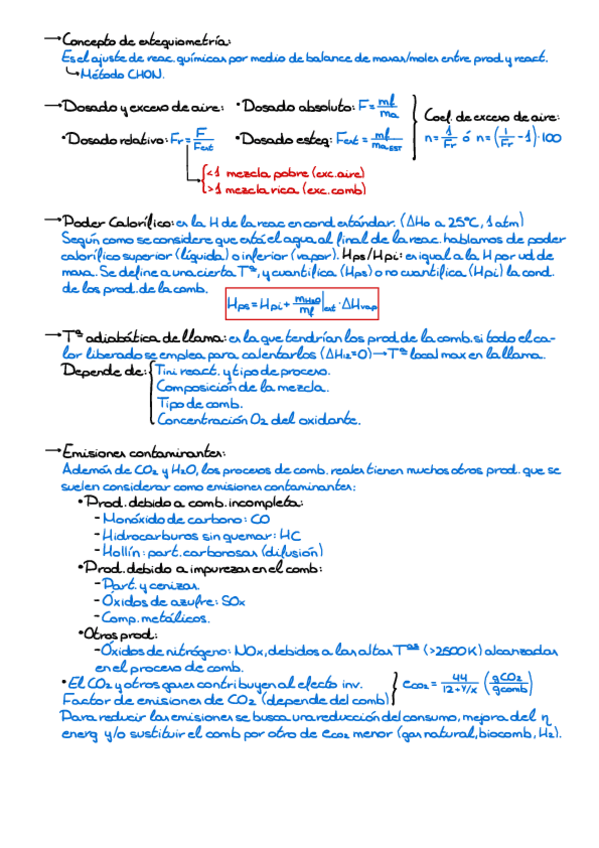 →Concepto de estequiometría:
Es el ajuste de reac. químicas por medio de balance de masas/moles entre prod. y react.
↳Método CHON.
→Dosado y exceso de aire: •Dosado absoluto: F = mf/ma
Coef. de exceso de aire:
•Dosado relativo: Fr = F/Fest •Dosado esteq: Fest = mf/ma EST
n = 1/Fr ó n = (1/Fr - 1)·100
<1 mezcla pobre (exc. aire)
>1 mezcla rica (exc. comb)
→Poder Calorífico: es la H de la reac en cond. estándar. (ΔHo a 25ºC, 1 atm)
Según como se considere que está el agua al final de la reac. hablamos de poder
calorífico superior (líquida) o inferior (vapor). Hps/Hpi: es igual a la H por ud de
masa. Se define a una cierta Tª, y cuantifica (Hps) o no cuantifica (Hpi) la cond.
de los prod. de la comb.
Hps = Hpi + mH2O/mf |est · ΔHvap
→Tª adiabática de llama: es la que tendrían los prod. de la comb. si todo el ca-
lor liberado se emplea para calentarlos (ΔH12=0)→Tª local max en la llama.
Depende de: Tini react. y tipo de proceso.
Composición de la mezcla.
Tipo de comb.
Concentración O2 del oxidante.
→Emisiones contaminantes:
Además de CO2 y H2O, los procesos de comb. reales tienen muchos otros prod. que se
suelen considerar como emisiones contaminantes:
•Prod. debido a comb. incompleta:
-Monóxido de carbono: CO
-Hidrocarburos sin quemar: HC
-Hollín: part. carbonosas (difusión)
•Prod. debido a impurezas en el comb:
-Part. y cenizas.
-Óxidos de azufre: SOx
-Comp. metálicos.
•Otros prod:
-Óxidos de nitrógeno: NOx, debidos a las altas Tªs (>2500K) alcanzadas
en el proceso de comb.
•El CO2 y otros gases contribuyen al efecto inv.
Factor de emisiones de CO2 (depende del comb)
eCO2 = 44/(12+Y/X) (gCO2/gcomb)
Para reducir las emisiones se busca una reducción del consumo, mejora del η
energ y/o sustituir el comb por otro de eCO2 menor (gas natural, biocomb, H2).